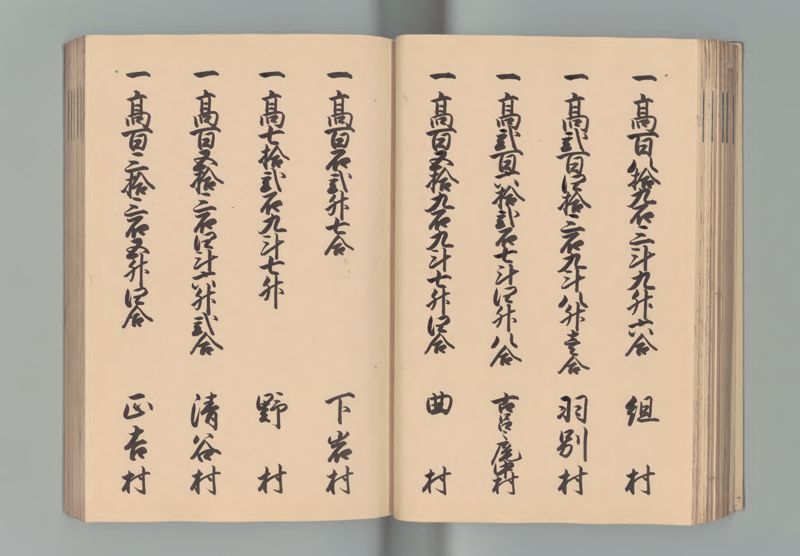 一高百八拾九石三斗九升六合 組村
一高弐百四拾三石九斗八升壱合 羽別村
一高弐百六拾弐石七斗四升八合 古呂々尾中村
一高百五拾九石九斗七升四合 曲村
一高百石弐升七合 下岩村
一高七拾弐石九斗七升 野村
一高百五拾三石四斗六升弐合 清谷村
一高百三拾三石五升四合 正吉村